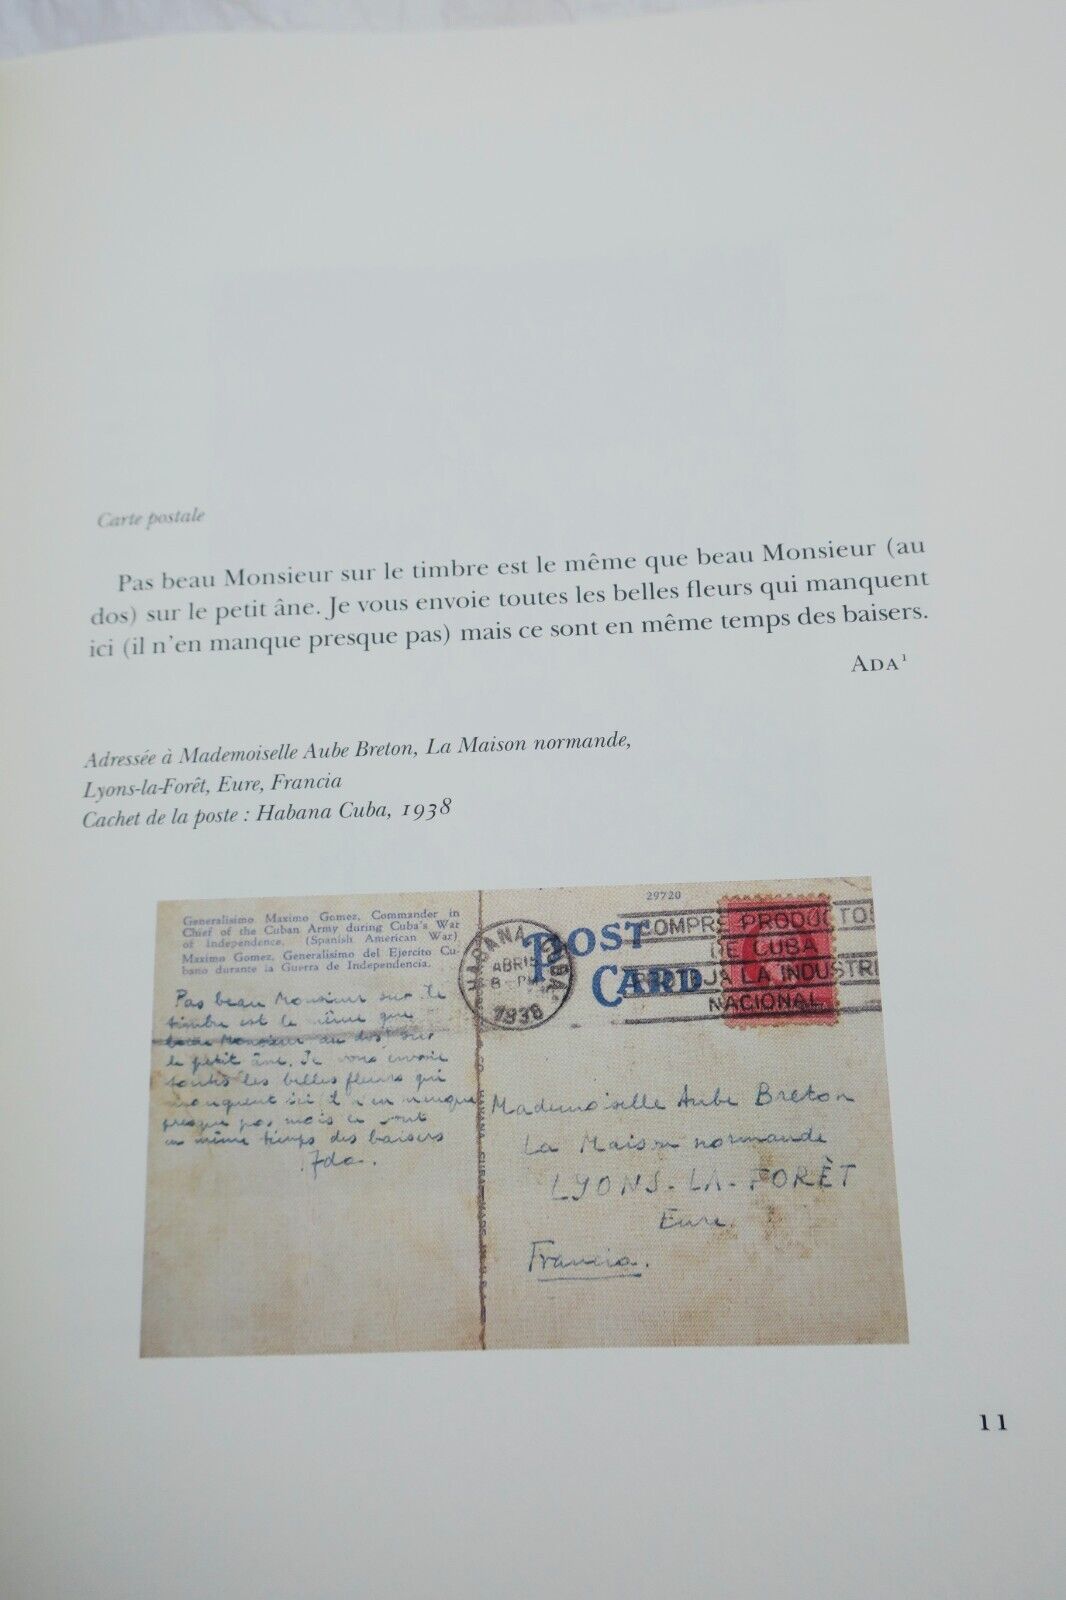 Carte postale
Pas beau Monsieur sur le timbre est le même que beau Monsieur (au
dos) sur le petit âne. Je vous envoie toutes les belles fleurs qui manquent
ici (il n'en manque presque pas) mais ce sont en même temps des baisers.
ADA¹
Adressée à Mademoiselle Aube Breton, La Maison normande,
Lyons-la-Forêt, Eure, Francia
Cachet de la poste : Habana Cuba, 1938
Generalisimo Maximo Gomez, Commander in
Chief of the Cuban Army during Cuba's War
of Independence. (Spanish American War)
Maximo Gomez, Generalisimo del Ejercito Cu-
bano durante la Guerra de Independencia.
Pas beau Monsieur sur le
timbre est le même que
beau Monsieur au dos sur
le petit âne. Je vous envoie
toutes les belles fleurs qui
manquent ici il n'en manque
presque pas mais ce sont
en même temps des baisers
Ada.
29720
POST
CARD
HABANA CUBA.
ABR 15
8 - PM
1938
COMPRE PRODUCTOS
DE CUBA
LA INDUSTRI
NACIONAL
HABANA, CUBA. MADE IN U.S.A.
Mademoiselle Aube Breton
La Maison normande
LYONS-LA-FORÊT
Eure
Francia.
11